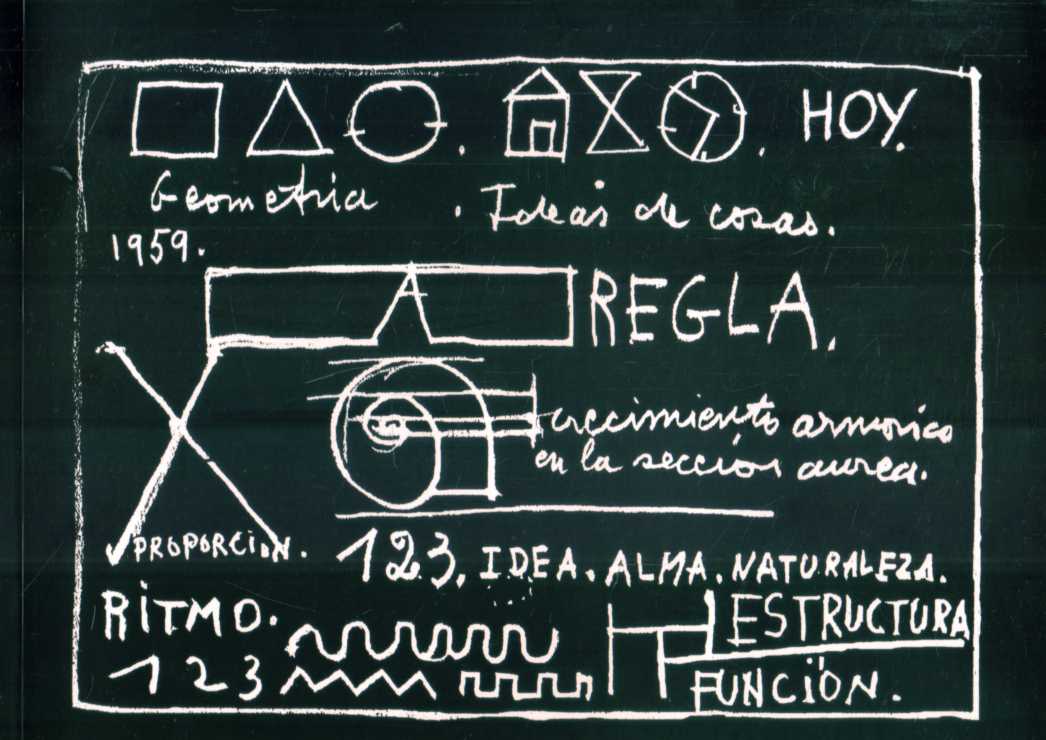 HOY.
Geometria . Ideas de cosas.
1959.
A REGLA.
crecimiento armonico
en la seccion aurea.
PROPORCIÓN. 123. IDEA. ALMA. NATURALEZA.
RITMO. ESTRUCTURA
1 2 3 FUNCIÓN.